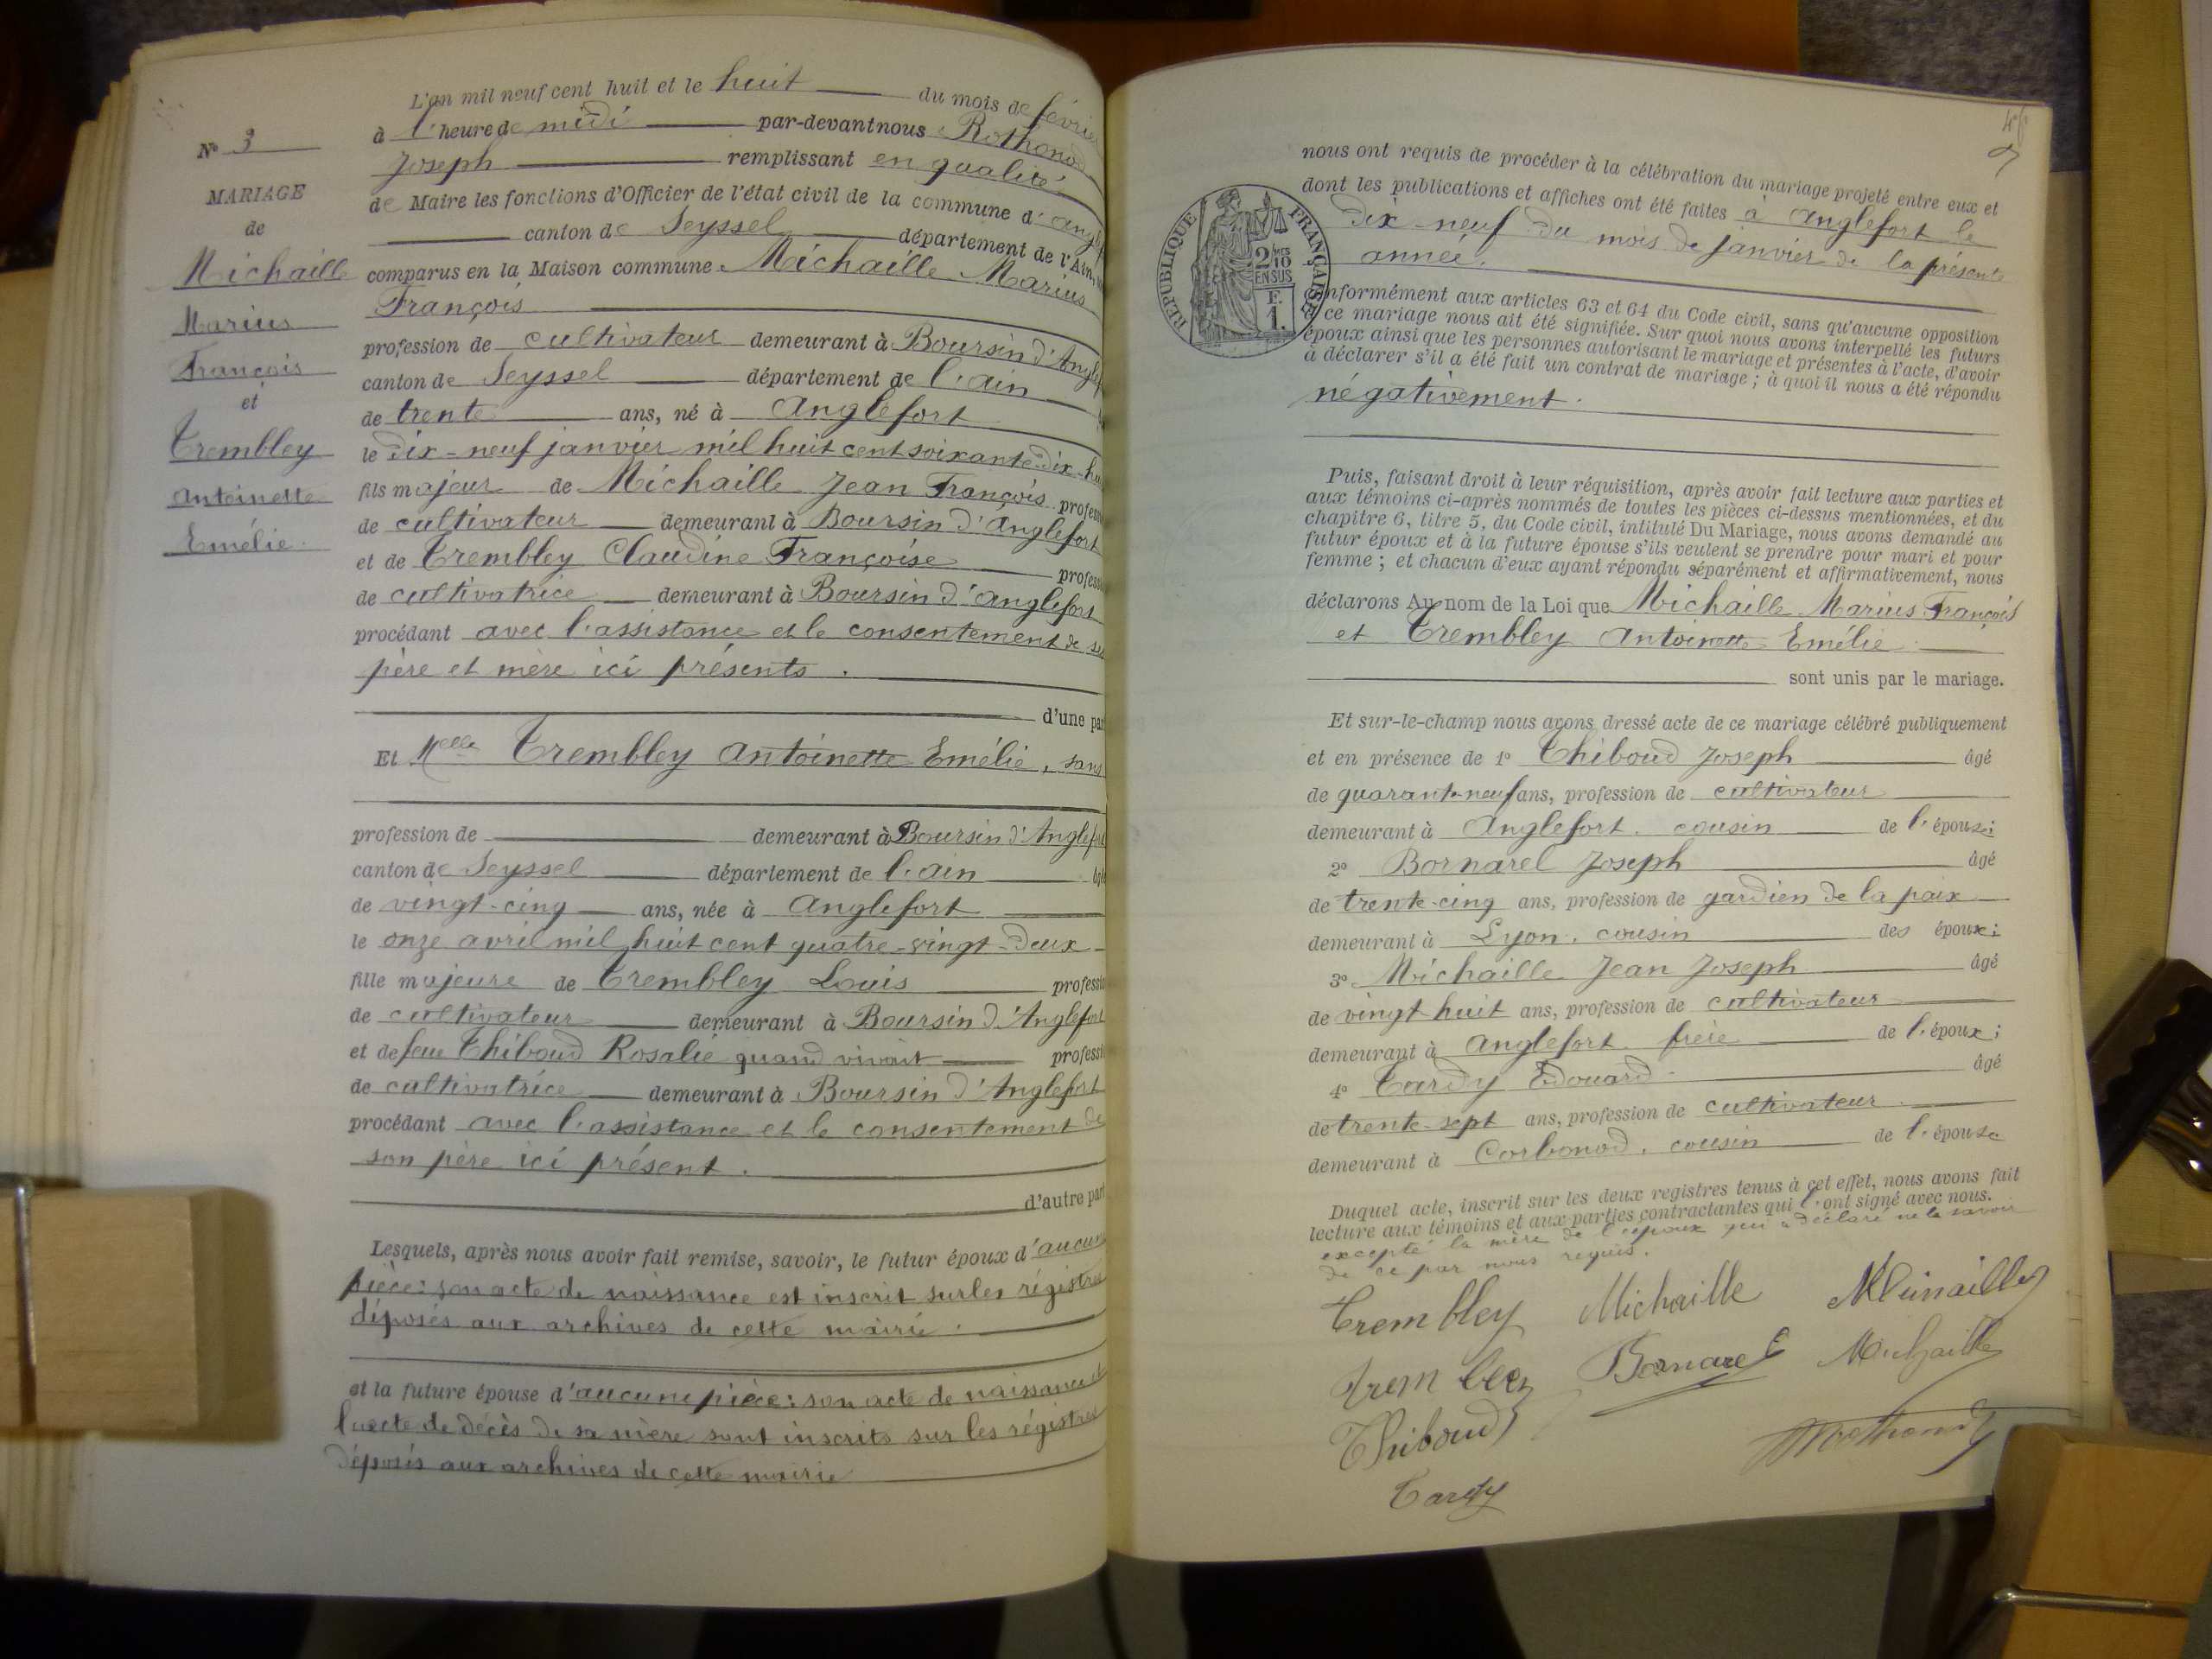 L'an mil neuf cent huit et le huit du mois de février
N° 3
à l'heure de midi par-devant nous Rothonod
Joseph remplissant en qualité
MARIAGE
de Maire les fonctions d'Officier de l'état civil de la commune d'Anglef
de
canton de Seyssel département de l'Ain,
Michaille
comparus en la Maison commune Michaille Marius
Marius
François
François
profession de cultivateur demeurant à Boursin d'Anglef
et
canton de Seyssel département de l'ain
de trente ans, né à Anglefort
Trembley
le dix-neuf janvier mil huit cent soixante-dix-hu
Antoinette
fils majeur de Michaille Jean François profess
Emélie.
de cultivateur demeurant à Boursin d'Anglefort
et de Trembley Claudine Françoise professi
de cultivatrice demeurant à Boursin d'Anglefort
procédant avec l'assistance et le consentement de ses
père et mère ici présents.
d'une par
Et Melle Trembley Antoinette Emélie, sans
profession de demeurant à Boursin d'Anglefort
canton de Seyssel département de l'ain âgé
de vingt-cinq ans, née à Anglefort
le onze avril mil huit cent quatre-vingt-deux
fille majeure de Trembley Louis professio
de cultivateur demeurant à Boursin d'Anglefort
et de feue Thiboud Rosalie quand vivait professi
de cultivatrice demeurant à Boursin d'Anglefort
procédant avec l'assistance et le consentement de
son père ici présent.
d'autre part
Lesquels, après nous avoir fait remise, savoir, le futur époux d'aucune
pièce: son acte de naissance est inscrit sur les régistres
déposés aux archives de cette mairie.
et la future épouse d'aucune pièce: son acte de naissance et
l'acte de décès de sa mère sont inscrits sur les régistres
déposés aux archives de cette mairie
nous ont requis de procéder à la célébration du mariage projeté entre eux et
dont les publications et affiches ont été faites à Anglefort le
dix-neuf du mois de janvier de la présente
année.
RÉPUBLIQUE FRANÇAISE
2/10
EN SUS
F.
1.
conformément aux articles 63 et 64 du Code civil, sans qu'aucune opposition
à ce mariage nous ait été signifiée. Sur quoi nous avons interpellé les futurs
époux ainsi que les personnes autorisant le mariage et présentes à l'acte, d'avoir
à déclarer s'il a été fait un contrat de mariage ; à quoi il nous a été répondu
négativement.
Puis, faisant droit à leur réquisition, après avoir fait lecture aux parties et
aux témoins ci-après nommés de toutes les pièces ci-dessus mentionnées, et du
chapitre 6, titre 5, du Code civil, intitulé Du Mariage, nous avons demandé au
futur époux et à la future épouse s'ils veulent se prendre pour mari et pour
femme ; et chacun d'eux ayant répondu séparément et affirmativement, nous
déclarons Au nom de la Loi que Michaille Marius François
et Trembley Antoinette Emélie
sont unis par le mariage.
Et sur-le-champ nous avons dressé acte de ce mariage célébré publiquement
et en présence de 1° Thiboud Joseph âgé
de quarante-neuf ans, profession de cultivateur
demeurant à Anglefort. cousin de l'épouse;
2° Bornarel Joseph âgé
de trente-cinq ans, profession de gardien de la paix
demeurant à Lyon. cousin des époux;
3° Michaille Jean Joseph âgé
de vingt huit ans, profession de cultivateur
demeurant à Anglefort frère de l'époux;
4° Tardy Edouard. âgé
de trente-sept ans, profession de cultivateur
demeurant à Corbonod. cousin de l'épouse
Duquel acte, inscrit sur les deux registres tenus à cet effet, nous avons fait
lecture aux témoins et aux parties contractantes qui l'ont signé avec nous.
excepté la mère de l'époux qui a déclaré ne le savoir
de ce par nous requis.
Trembley Michaille Michaille
Trembley Bornarel Michaille
Thiboud
Rothonod
Tardy